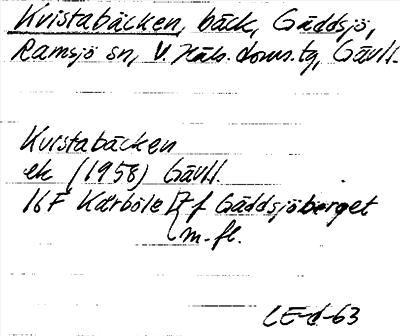 Kvistabäcken, bäck, Gäddsjö,
Ramsjö sn, V. Häls. doms.tg, Gävl.
Kvistabäcken
ek (1958) Gävl.
16F Kårböle f Gäddsjöberget
m.fl.
CE-d-63